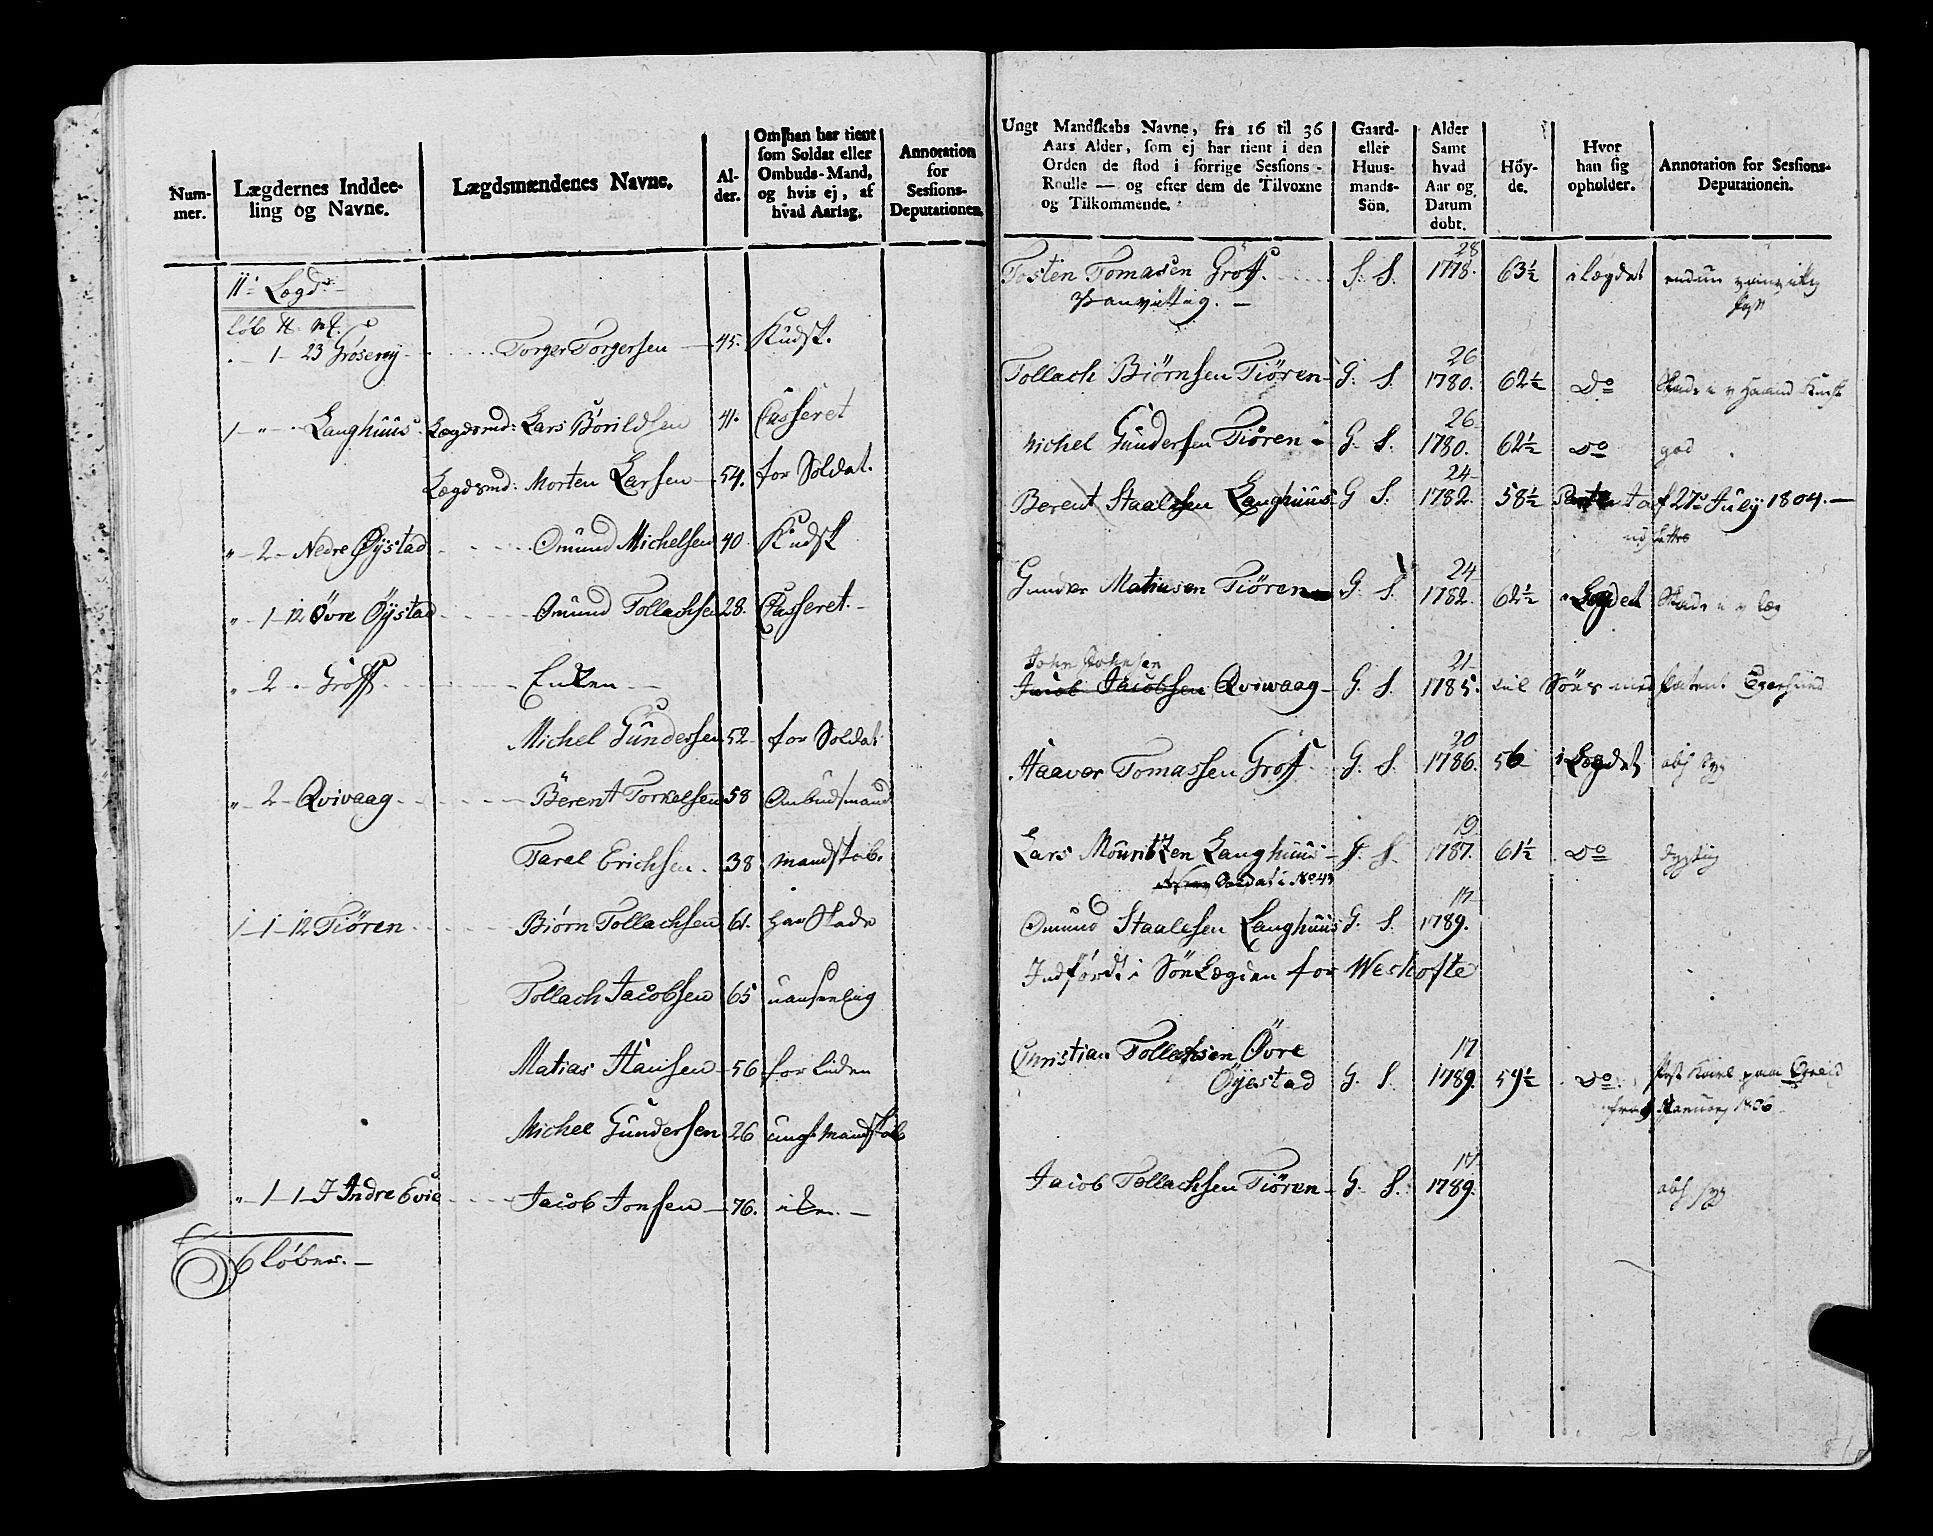 Num-
mer.
Lægdernes Inddee-
ling og Navne.
Lægdsmændenes Navne.
Al-
der.
Om han har tient
som Soldat eller
Ombuds-Mand,
og hvis ej, af
hvad Aarsag.
Annotation
for
Sessions-
Deputationen.
11te Lægd
løb H: mk.
„ - 1 - 23 Grøsemy Torger Torgersen 45. Kudsk.
1 - „ - Langhuus Lægdsmd: Lars Børildsen 41. Casseret
Lægdsmd: Morten Larsen 54. for Soldat.
„ - 2 - Nedre Øystad Omund Michelsen 40 Kudsk
„ - 1 - 12 Øvre Øystad Omund Tollachsen 28. Casseret.
„ - 2 - Groff Enken
Michel Gundersen 52 for Soldat
„ - 2 - Qvivaag Berent Torkelsen 58 Ombudsmand
Tarel Erichsen 38 mandskab.
1 - 1 - 12 Tiøren Biørn Tollachsen 61. har Skade
Tollach Jacobsen 65 uanseelig
Matias Hansen 56 for liden
Michel Gundersen 26 ungt Mandskab
„ - 1 - 1 - J Indre Evie Jacob Jonsen 76.
6 løber.
Ungt Mandskabs Navne, fra 16 til 36
Aars Alder, som ej har tient i den
Orden de stod i forrige Sessions-
Roulle — og efter dem de Tilvoxne
og Tilkommende.
Gaard-
eller
Huus-
mands-
Sön.
Alder
Samt
hvad
Aar og
Datum
dobt.
Höy-
de.
Hvor
han sig
opholder.
Annotation for Sessions-
Deputationen.
28
Tosten Tomasen Groff. S. S. 1778. 63½ i Lægdet endnu
Vanvittig.
26
Tollach Biörnsen Tiören G. S. 1780. 62½ Do Skade i v Haand Kudsk
26
Michel Gundersen Tiören G. S. 1780. 62½ Do god
24
Berent Staalesen Langhuus G S. 1782. 58½ 27de July 1804.
24
Gunder Matiasen Tiören G. S. 1782. 62½ i Legdet Skade i v
John Johnsen
21
Jacob Jacobsen Qvivaag G. S. 1785. Patent Egersund
20
Haaver Tomassen Groff G. S. 1786. 56 i Lægdet abs syg
19
Lars Mouritzen Langhuus G. S. 1787. 61½ Do dygtig
Soldat i No 43
17
Omund Staalesen Langhuus G. S. 1789.
Indførdt i Søe Lægden for Weskofte
Christian Tollachsen Øvre 17
Øyestad G. S. 1789. 59½ Do. Post Karl paa Egeland
fra January 1806
17
Jacob Tollachsen Tiören G. S. 1789. abs syg